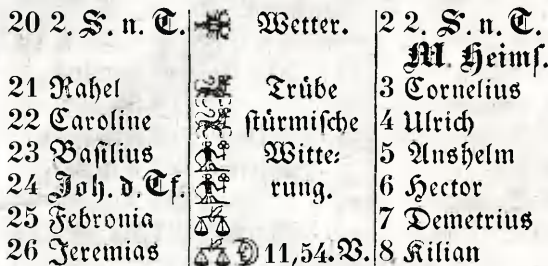 20 2. S. n. T. Wetter. 2 2. S. n. T.
M. Heims.
21 Rahel Trübe 3 Cornelius
22 Caroline ſtürmiſche 4 Ulrich
23 Baſilius Witte⸗ 5 Anshelm
24 Joh. d. Tf. rung. 6 Hector
25 Febronia 7 Demetrius
26 Jeremias 11,54. V. 8 Kilian